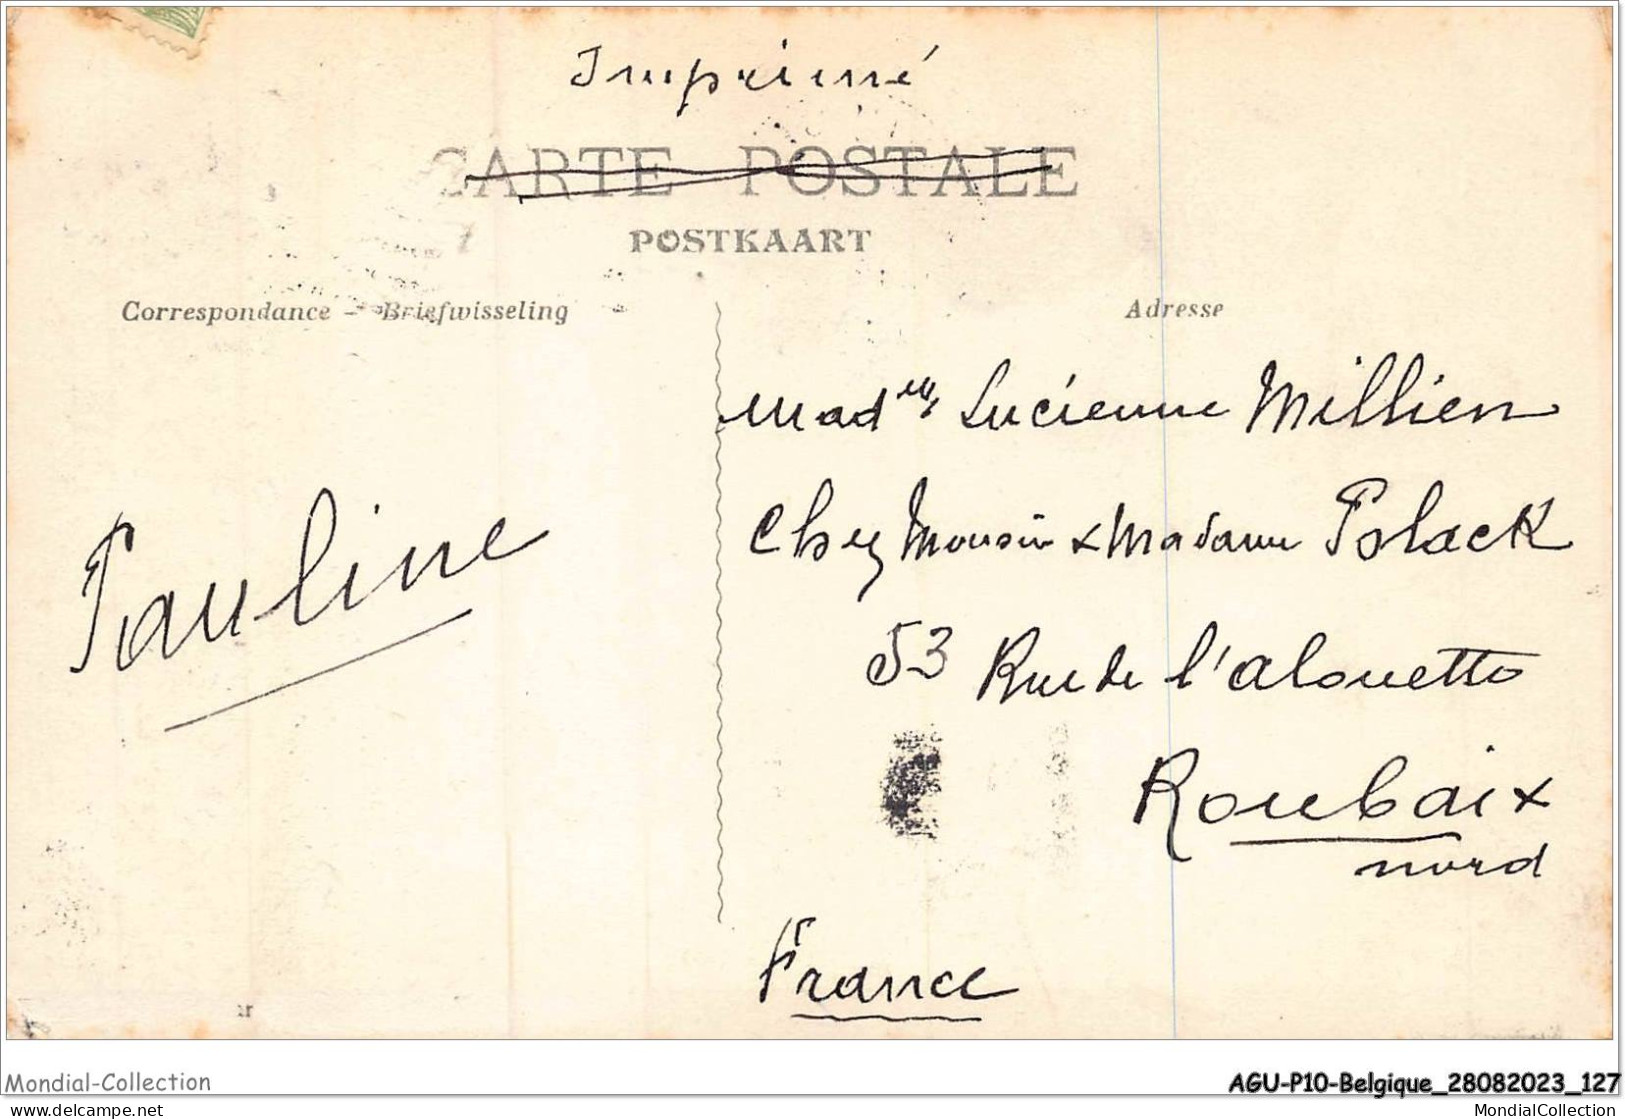 Imprimé
CARTE POSTALE
POSTKAART
Correspondance - Briefwisseling
Adresse
Madelle Lucienne Millien
Chez Monsier & Madame Polack
Pauline
53 Rue de l'alouette
Roubaix
nord
France
Mondial-Collection
AGU-P10-Belgique_28082023_127
delcampe.net
MondialCollection